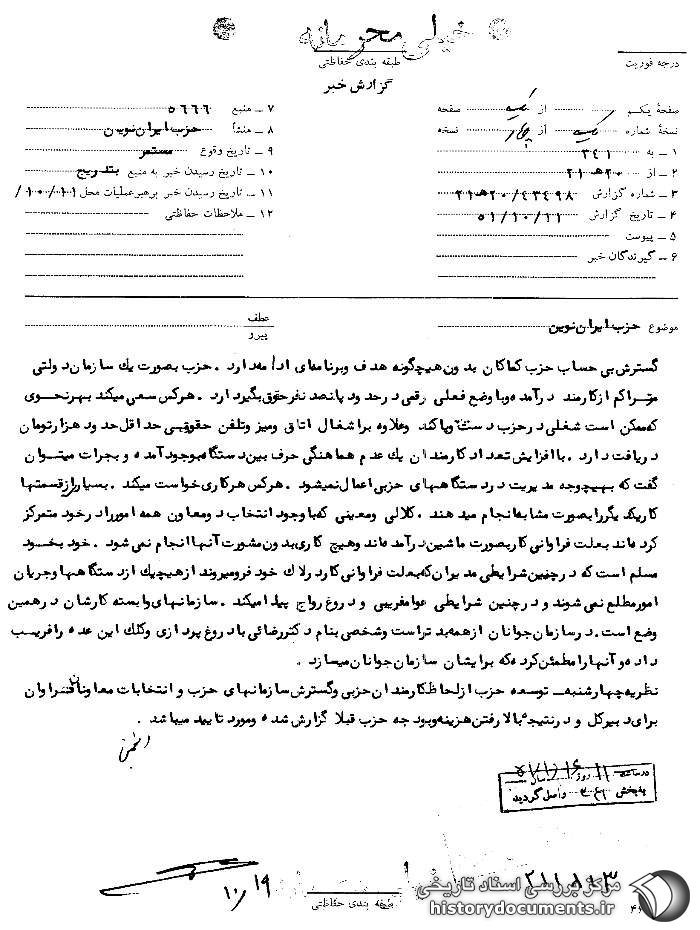 خیلی محرمانه
طبقه بندی حفاظتی
گزارش خبر
درجه فوریت
صفحهٔ یکم از یک صفحه
نسخهٔ شماره یک از چهار نسخه
۱ ـ به ۳۴۱
۲ ـ از ۲۰هـ۲۱
۳ ـ شماره گزارش ۴۳۴۹۸/۲۰هـ۲۱
۴ ـ تاریخ گزارش ۵۱/۱۰/۱۱
۵ ـ پیوست
۶ ـ گیرندگان خبر
۷ ـ منبع ۵۶۶۶
۸ ـ منشأ حزب ایران نوین
۹ ـ تاریخ وقوع مستمر
۱۰ ـ تاریخ رسیدن خبر به منبع بتدریج
۱۱ ـ تاریخ رسیدن خبر برهبر عملیات محل ۱۰/۱۱/
۱۲ ـ ملاحظات حفاظتی
موضوع حزب ایران نوین
عطف
پیرو
گسترش بی حساب حزب کماکان بدون هیچگونه هدف وبرنامه‌ای ادامه دارد . حزب بصورت یك سازمان دولتی
متراکم ازکارمند درآمده وبا وضع فعلی رقمی درحدود پانصد نفرحقوق بگیر دارد . هرکس سعی میکند بهرنحوی
که ممکن است شغلی درحزب دست وپا کند وعلاوه براشغال اتاق ومیز وتلفن حقوقی حداقل حدود هزارتومان
دریافت دارد . باافزایش تعداد کارمندان یك عدم هماهنگی حرف بین دستگاه بوجود آمده و بجرات میتوان
گفت که بهیچوجه مدیریت دردستگاههای حزبی اعمال نمیشود . هرکس هرکاری خواست میکند . بسیار از قسمتها
کاریکدیگررا بصورت مشابه انجام میدهند . کلالی ومعینی که باوجود انتخاب دومعاون همه اموررا درخود متمرکز
کرده‌اند بعلت فراوانی کاربصورت ماشین درآمده‌اند وهیچ کاری بدون مشورت آنها انجام نمی شود . خود بخود
مسلم است که درچنین شرایطی مدیران که بعلت فراوانی کاردرلاك خود فرومیروند ازهیچیك ازدستگاهها وجریان
امورمطلع نمی شوند ودرچنین شرایطی عوامفریبی و دروغ رواج پیدا میکند . سازمانهای وابسته کارشان درهمین
وضع است . درسازمان جوانان ازهمه بدتراست وشخصی بنام دکتررضائی با دروغ پردازی وکلك این عده رافریب
داده وآنها رامطمئن کرده که برایشان سازمان جوانان میسازد .
نظریه چهارشنبه ـ توسعه حزب ازلحاظ کارمندان حزبی وگسترش سازمانهای حزب و انتخابات معاونان فراوان
برای دبیرکل و درنتیجه بالا رفتن هزینه وبودجه حزب قبلا گزارش شده ومورد تایید میباشد .
در ساعت ۱۱ روز سال
به بخش ۳۴۱ واصل گردید
۱۰/۱۹
طبقه بندی حفاظتی
مرکز بررسی اسناد تاریخی
historydocuments.ir